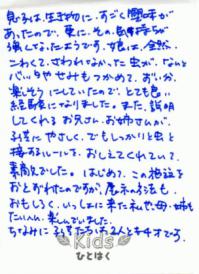 息子は、生き物に、すごく興味が
あったので、更に、その気持ちが
増したようです。娘は、全然、
こわくて、さわれなかった虫が、なんと
バッタやせみもつかめて、おい分、
楽しそうにしていたので、とても良い
経験になりました。また、説明
してくれるお兄さん、お姉さんが、
子供にやさしく、でもしっかりと虫と
接するルールを、おしえてくれていて、
素敵でした。はじめて、この施設を
おとずれたのですが、展示の方法も
おもしろく、いっしょに来た私や母・姉も
たいへん、楽しんでいました。
ちなみに子供たちは2人とも4才です。
Kids
ひとはく